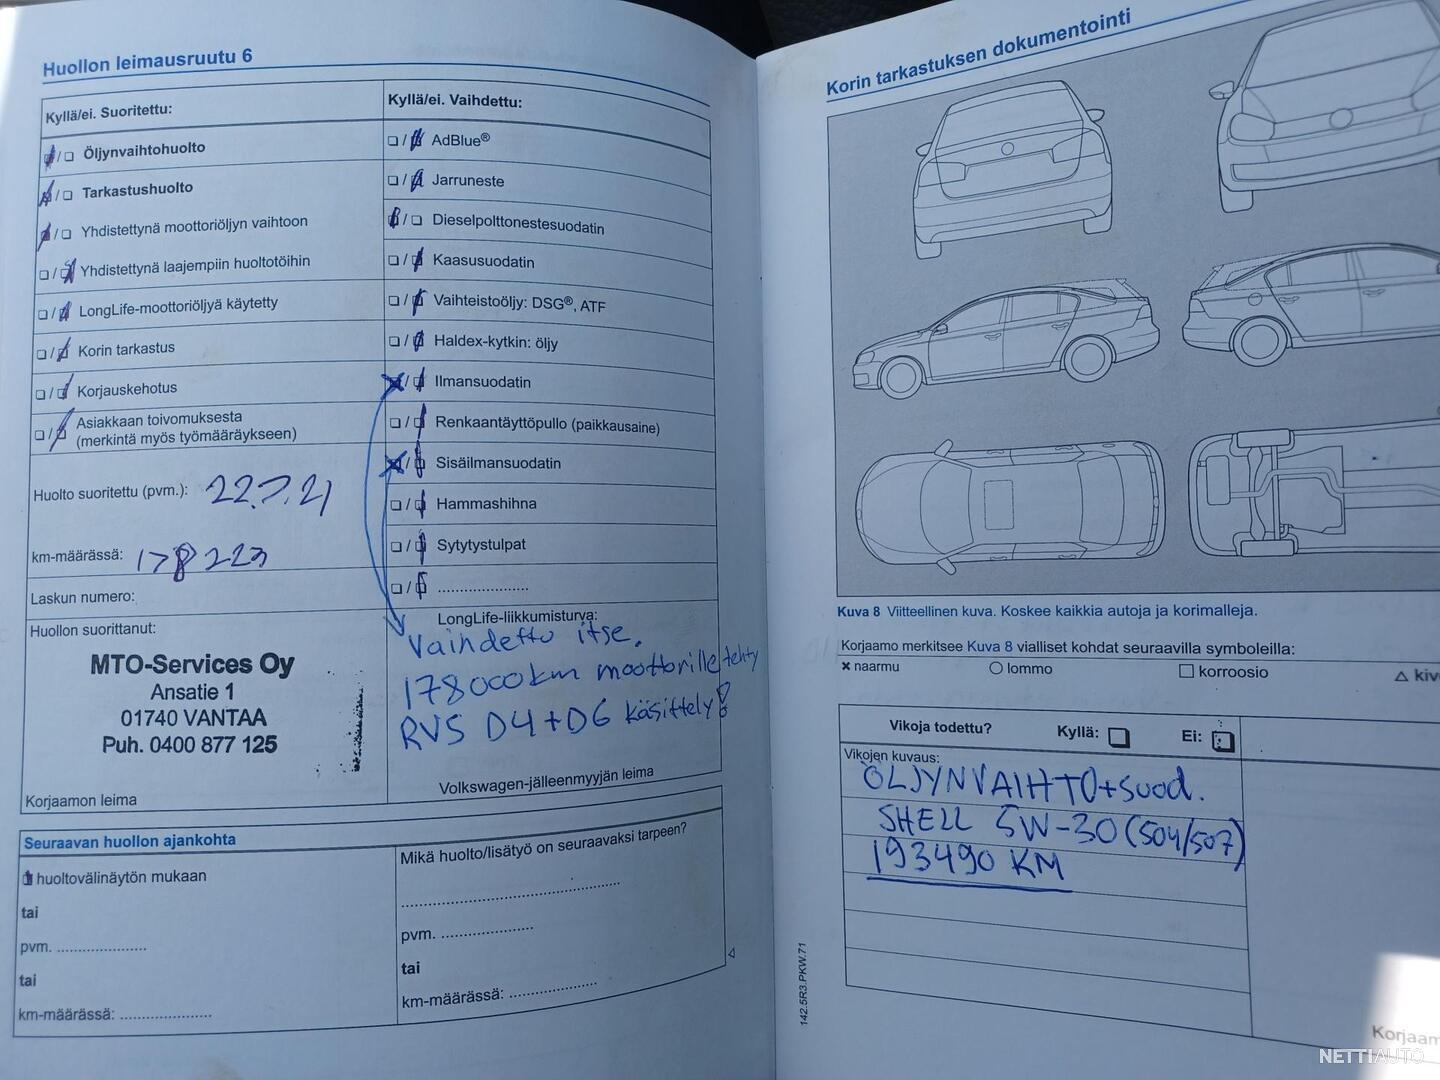 Huollon leimausruutu 6
Kyllä/ei. Suoritettu:
Öljynvaihtohuolto
Tarkastushuolto
Yhdistettynä moottoriöljyn vaihtoon
Yhdistettynä laajempiin huoltotöihin
LongLife-moottoriöljyä käytetty
Korin tarkastus
Korjauskehotus
Asiakkaan toivomuksesta
(merkintä myös työmääräykseen)
Huolto suoritettu (pvm.): 22.7.21
km-määrässä: 178 223
Laskun numero:
Huollon suorittanut:
MTO-Services Oy
Ansatie 1
01740 VANTAA
Puh. 0400 877 125
Korjaamon leima
Kyllä/ei. Vaihdettu:
AdBlue®
Jarruneste
Dieselpolttonestesuodatin
Kaasusuodatin
Vaihteistoöljy: DSG®, ATF
Haldex-kytkin: öljy
Ilmansuodatin
Renkaantäyttöpullo (paikkausaine)
Sisäilmansuodatin
Hammashihna
Sytytystulpat
LongLife-liikkumisturva:
Vaihdettu itse.
178000km moottorille tehty
RVS D4+D6 käsittely!
Volkswagen-jälleenmyyjän leima
Seuraavan huollon ajankohta
huoltovälinäytön mukaan
tai
pvm. ....................
tai
km-määrässä: ....................
Mikä huolto/lisätyö on seuraavaksi tarpeen?
pvm. ....................
tai
km-määrässä: ....................
Korin tarkastuksen dokumentointi
Kuva 8 Viitteellinen kuva. Koskee kaikkia autoja ja korimalleja.
Korjaamo merkitsee Kuva 8 vialliset kohdat seuraavilla symboleilla:
× naarmu ○ lommo □ korroosio △ kiv
Vikoja todettu? Kyllä: Ei:
Vikojen kuvaus:
ÖLJYNVAIHTO+suod.
SHELL 5W-30 (504/507)
193490 KM
142.5R3.PKW.71
Korjaam
NETTIAUTO